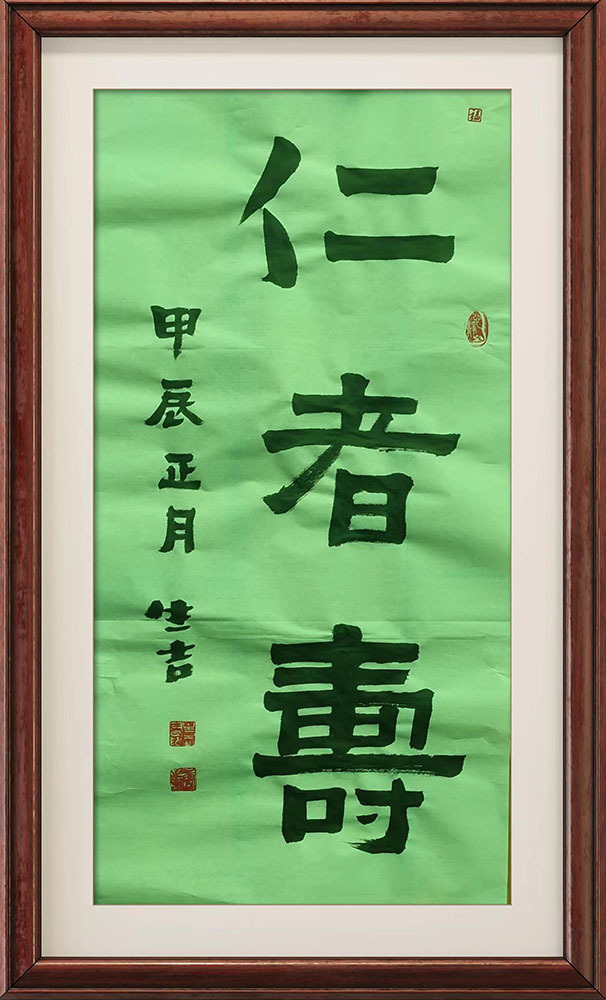 仁者壽
甲辰正月 生吉